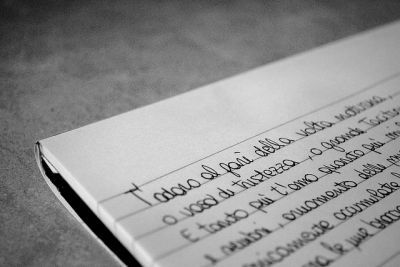 T'adoro al pari della volta notturna,
o vaso di tristezza, o grande Taciturna
E tanto più t'amo quanto più
e sembri, ornamento delle mie
accumulare
le mie braccia